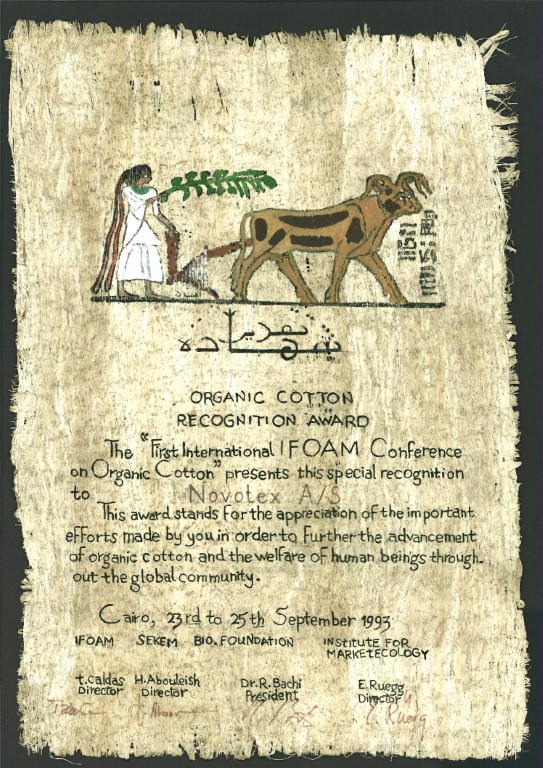 شهادة تقدير
ORGANIC COTTON
RECOGNITION AWARD
The "First International IFOAM Conference
on Organic Cotton" presents this special recognition
to Novotex A/S
This award stands for the appreciation of the important
efforts made by you in order to further the advancement
of organic cotton and the welfare of human beings through-
out the global community.
Cairo, 23rd to 25th September 1993
IFOAM SEKEM BIO. FOUNDATION INSTITUTE FOR
MARKETECOLOGY
t. Caldas H. Abouleish Dr. R. Bachi E. Ruegg
Director Director President Director
E. Ruegg